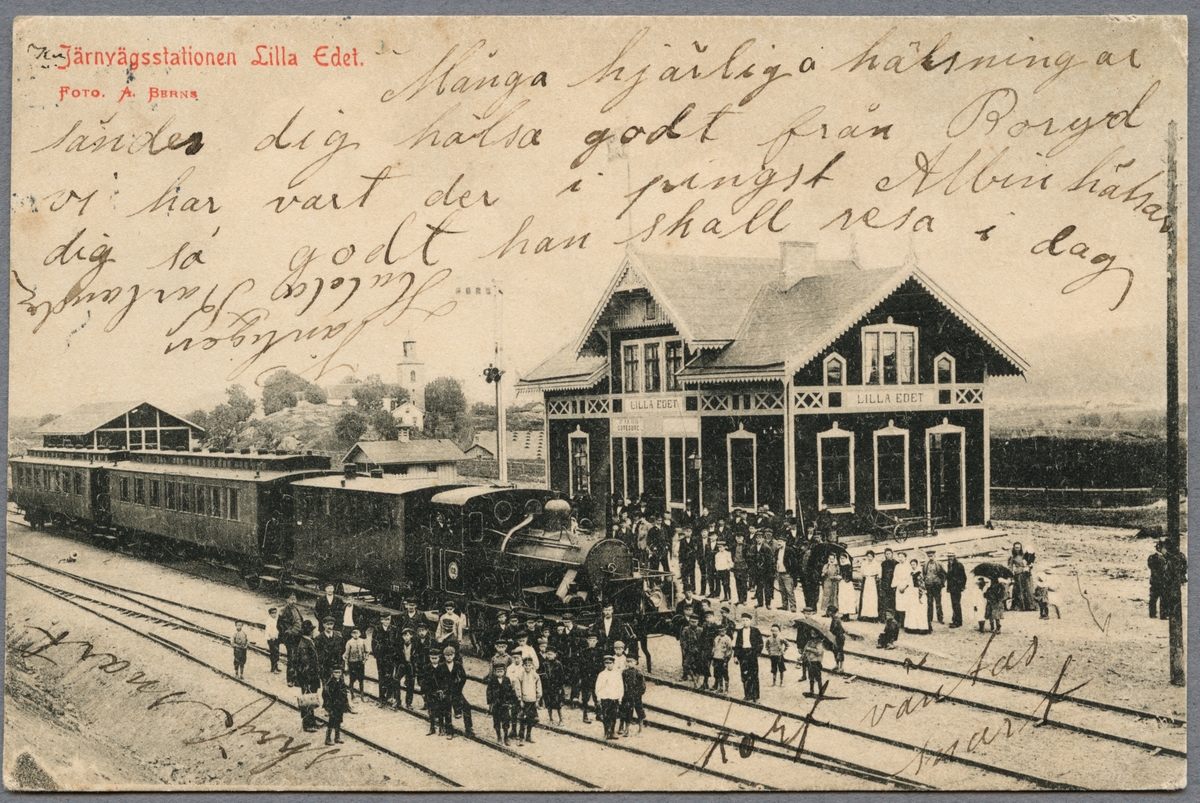 Järnvägsstationen Lilla Edet.
Foto. A. Berns
Många hjärliga hälsningar
sändes dig hälsa godt från Boryd
vi har vart der i pingst Albin hälsar
dig så godt han skall resa i dag
Hulda
Äntligen
LILLA EDET
LILLA EDET
kort
snart
skrif snart